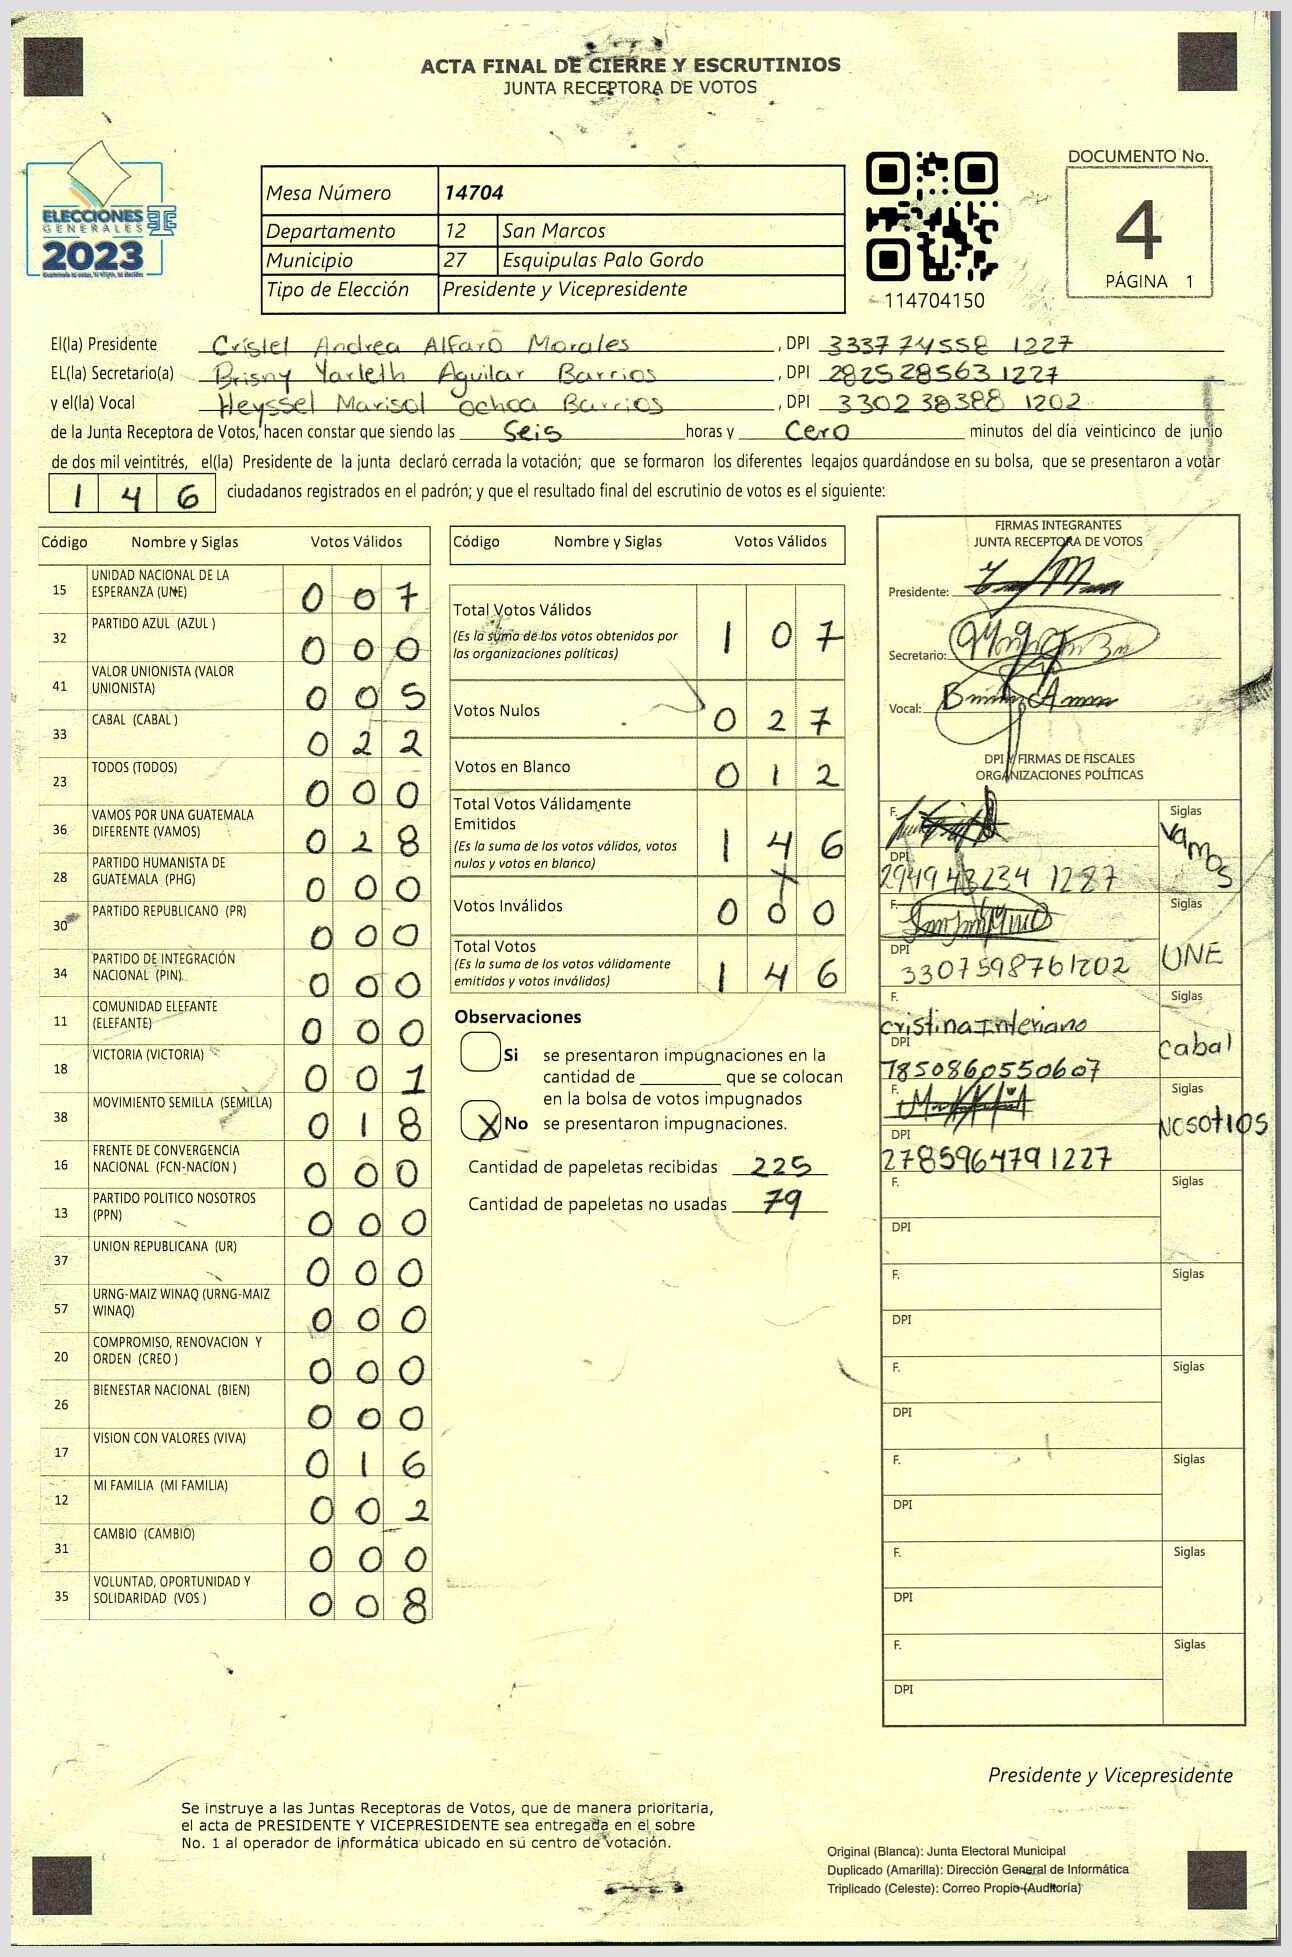 ACTA FINAL DE CIERRE Y ESCRUTINIOS
JUNTA RECEPTORA DE VOTOS
ELECCIONES
GENERALES
2023
Mesa Número 14704
Departamento 12 San Marcos
Municipio 27 Esquipulas Palo Gordo
Tipo de Elección Presidente y Vicepresidente
114704150
DOCUMENTO No.
4
PÁGINA 1
El(la) Presidente Cristel Andrea Alfaro Morales , DPI 333774558 1227
EL(la) Secretario(a) Brisny Yarleth Aguilar Barrios , DPI 282528563 1227
y el(la) Vocal Heyssel Marisol Ochoa Barrios , DPI 330238388 1202
de la Junta Receptora de Votos, hacen constar que siendo las Seis horas y Cero minutos del día veinticinco de junio
de dos mil veintitrés, el(la) Presidente de la junta declaró cerrada la votación; que se formaron los diferentes legajos guardándose en su bolsa, que se presentaron a votar
1 4 6 ciudadanos registrados en el padrón; y que el resultado final del escrutinio de votos es el siguiente:
Código Nombre y Siglas Votos Válidos
15 UNIDAD NACIONAL DE LA
ESPERANZA (UNE) 0 0 7
32 PARTIDO AZUL (AZUL ) 0 0 0
41 VALOR UNIONISTA (VALOR
UNIONISTA) 0 0 5
33 CABAL (CABAL ) 0 2 2
23 TODOS (TODOS) 0 0 0
36 VAMOS POR UNA GUATEMALA
DIFERENTE (VAMOS) 0 2 8
28 PARTIDO HUMANISTA DE
GUATEMALA (PHG) 0 0 0
30 PARTIDO REPUBLICANO (PR) 0 0 0
34 PARTIDO DE INTEGRACIÓN
NACIONAL (PIN) 0 0 0
11 COMUNIDAD ELEFANTE
(ELEFANTE) 0 0 0
18 VICTORIA (VICTORIA) 0 0 1
38 MOVIMIENTO SEMILLA (SEMILLA) 0 1 8
16 FRENTE DE CONVERGENCIA
NACIONAL (FCN-NACÍON ) 0 0 0
13 PARTIDO POLITICO NOSOTROS
(PPN) 0 0 0
37 UNION REPUBLICANA (UR) 0 0 0
57 URNG-MAIZ WINAQ (URNG-MAIZ
WINAQ) 0 0 0
20 COMPROMISO, RENOVACION Y
ORDEN (CREO ) 0 0 0
26 BIENESTAR NACIONAL (BIEN) 0 0 0
17 VISION CON VALORES (VIVA) 0 1 6
12 MI FAMILIA (MI FAMILIA) 0 0 2
31 CAMBIO (CAMBIO) 0 0 0
35 VOLUNTAD, OPORTUNIDAD Y
SOLIDARIDAD (VOS ) 0 0 8
Código Nombre y Siglas Votos Válidos
Total Votos Válidos
(Es la suma de los votos obtenidos por
las organizaciones políticas) 1 0 7
Votos Nulos 0 2 7
Votos en Blanco 0 1 2
Total Votos Válidamente
Emitidos
(Es la suma de los votos válidos, votos
nulos y votos en blanco) 1 4 6
Votos Inválidos 0 0 0
Total Votos
(Es la suma de los votos válidamente
emitidos y votos inválidos) 1 4 6
Observaciones
Si se presentaron impugnaciones en la
cantidad de ________ que se colocan
en la bolsa de votos impugnados
X No se presentaron impugnaciones.
Cantidad de papeletas recibidas 225
Cantidad de papeletas no usadas 79
FIRMAS INTEGRANTES
JUNTA RECEPTORA DE VOTOS
Presidente:
Secretario:
Vocal:
DPI Y FIRMAS DE FISCALES
ORGANIZACIONES POLÍTICAS
F. Siglas
DPI Vamos
294943234 1287
F. Siglas
DPI UNE
3307598761202
F. Siglas
cristina Interiano
DPI cabal
7850860550607
F. Siglas
DPI Nosotros
2785964791227
F. Siglas
DPI
F. Siglas
DPI
F. Siglas
DPI
F. Siglas
DPI
F. Siglas
DPI
F. Siglas
DPI
Presidente y Vicepresidente
Se instruye a las Juntas Receptoras de Votos, que de manera prioritaria,
el acta de PRESIDENTE Y VICEPRESIDENTE sea entregada en el sobre
No. 1 al operador de informática ubicado en su centro de votación.
Original (Blanca): Junta Electoral Municipal
Duplicado (Amarilla): Dirección General de Informática
Triplicado (Celeste): Correo Propio (Auditoría)